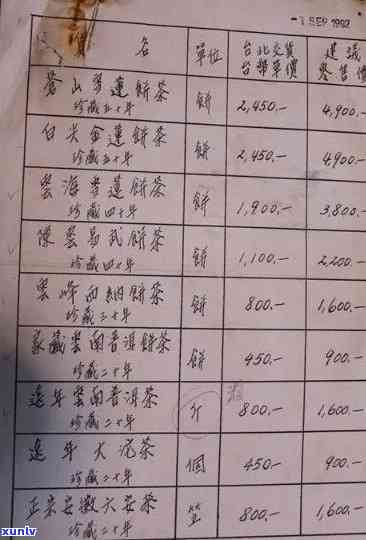 1 SEP 1992
名 單位 台北交貨 建議
台幣單價 零售價
蒼山雪蓮餅茶 餅 2,450.— 4,900.—
珍藏五十年
白尖金蓮餅茶 餅 2,450.— 4,900.—
珍藏五十年
雲海雪蓮餅茶 餅 1,900.— 3,800.—
珍藏四十年
陳雲易武餅茶 餅 1,100.— 2,200.—
珍藏四十年
雲峰雨納餅茶 餅 800.— 1,600.—
珍藏三十年
家藏雲南普洱餅茶 餅 450.— 900.—
珍藏二十年
遠年雲南普洱茶 斤 800.— 1,600.—
珍藏二十年
遠年大沱茶 個 450.— 900.—
珍藏二十年
正宗安徽六安茶 800.— 1,600.—
珍藏二十年
xunlv